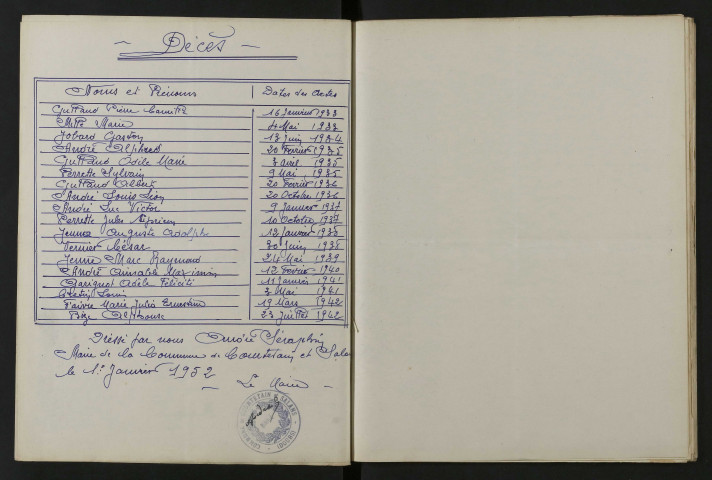 — Décès —
Noms et Prénoms Dates des actes
Guffand Pierre 16 Janvier 1933
Marie 4 Mai 1933
Jobard Gaston 13 Juin 1934
André Alphred 20 Février 1935
Guffand Adèle Marie 3 avril 1935
Perrette Sylvain 9 Mai 1935
Guffand Albert 20 Février 1936
André Louis Léon 20 Octobre 1936
André Luc Victor 9 Janvier 1937
Perrette Jules 10 Octobre 1937
Jeune Auguste Adolphe 12 Janvier 1938
Vernier César 30 Juin 1938
Jeune Marc Raymond 24 Mai 1939
André Aimable Maximin 12 Février 1940
Adèle Féliciti 11 Janvier 1941
Louis 3 Mai 1941
Faivre Marie Julie Ernestine 19 Mars 1942
Alphonse 23 Juillet 1942
Dressé par nous André Séraphin
Maire de la Commune de Courtetain et Salans
le 1er Janvier 1952
Le Maire —
COURTETAIN & SALANS